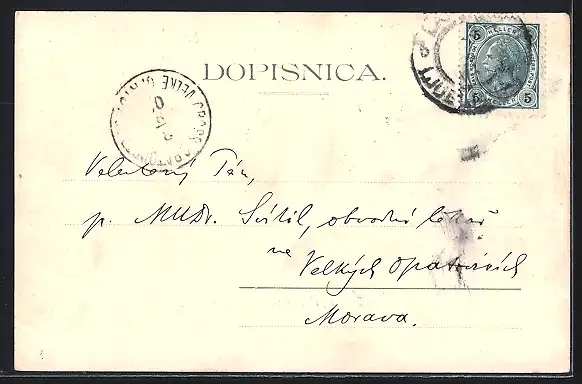 DOPISNICA.
5 HELLER 5
5 5
Velectěný Pán,
p. MUDr. Svítil, obvodní lékař
ve
Velkých Opatovicích
Morava.